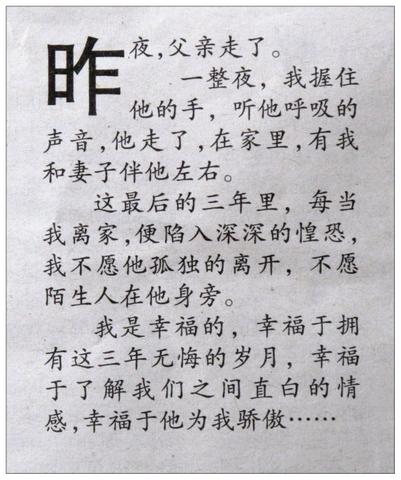 昨夜,父亲走了。
一整夜，我握住
他的手，听他呼吸的
声音,他走了,在家里,有我
和妻子伴他左右。
这最后的三年里，每当
我离家,便陷入深深的惶恐,
我不愿他孤独的离开，不愿
陌生人在他身旁。
我是幸福的，幸福于拥
有这三年无悔的岁月，幸福
于了解我们之间直白的情
感,幸福于他为我骄傲……